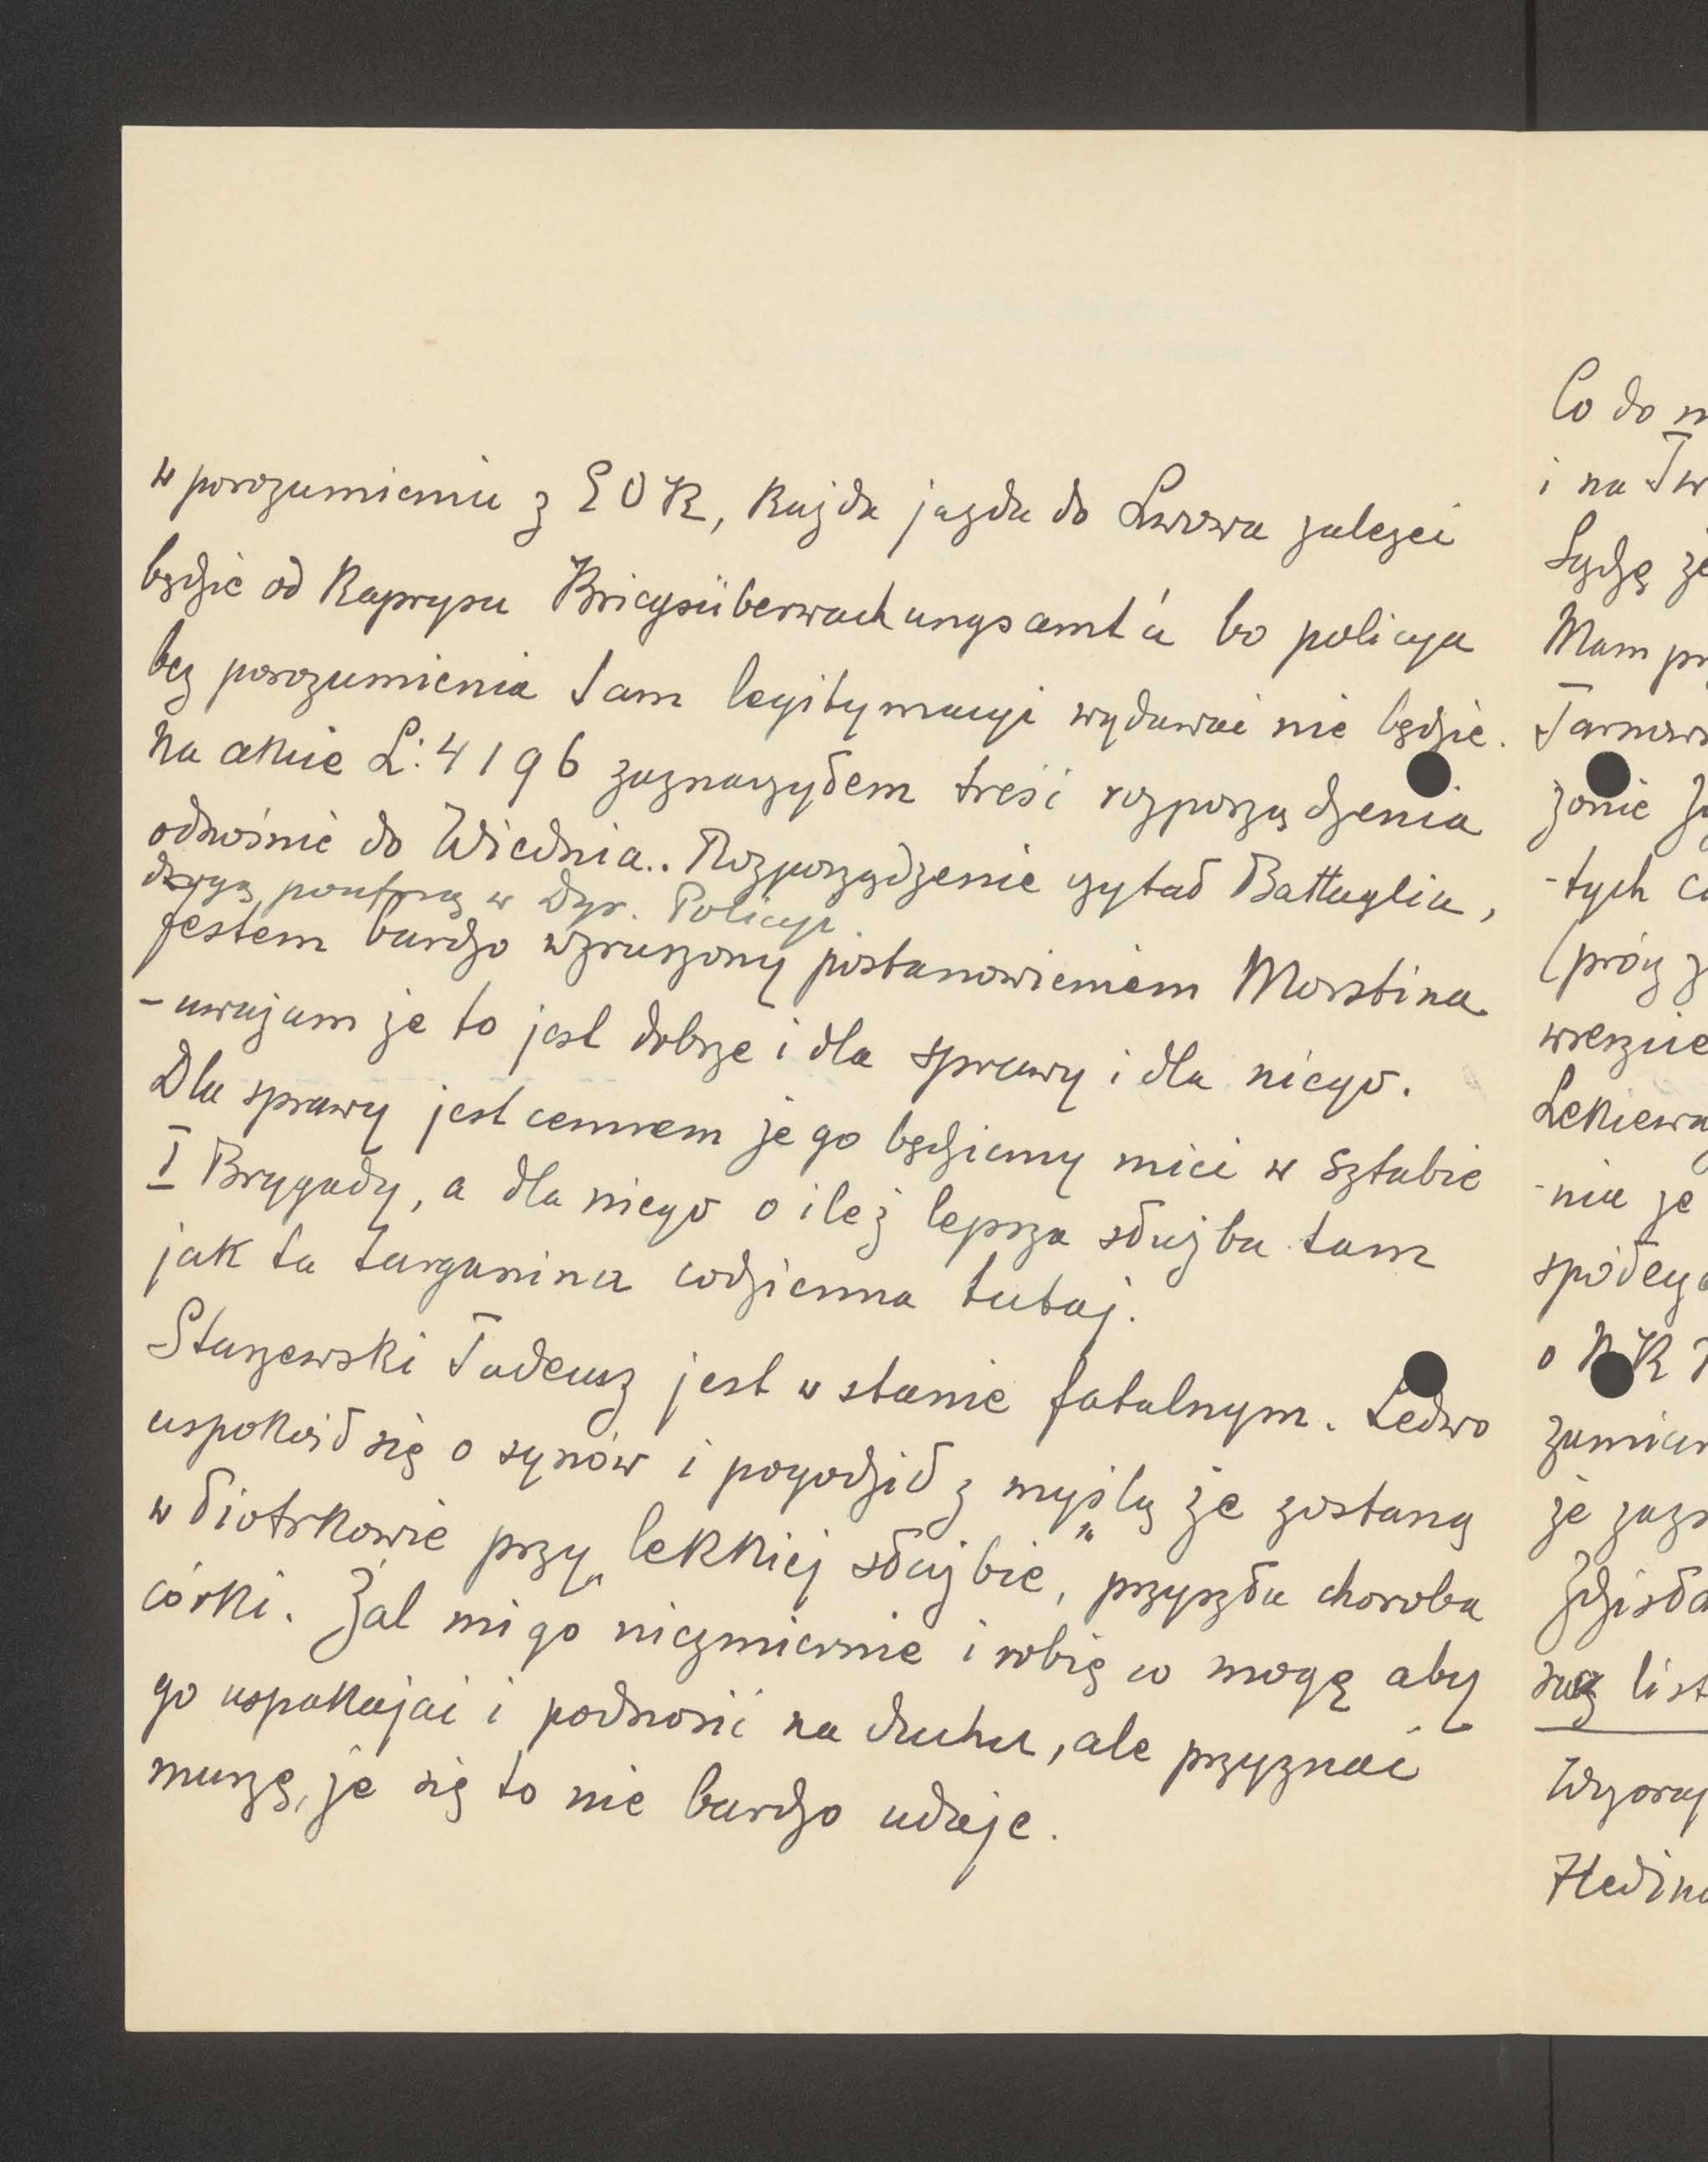 w porozumieniu z EOK, każda jazda do Lwowa zależeć
będzie od kaprysu Kriegsüberwachungsamt'u bo policya
bez porozumienia tam legitymacyi wydawać nie będzie.
Na akcie L: 4196 zaznaczyłem treść rozporządzenia
odnośnie do Wiednia.. Rozporządzenie czytał Battaglia,
drogą poufną w Dyr. Policyi
Jestem bardzo wzruszony postanowieniem Morstina
- uważam że to jest dobrze i dla sprawy i dla niego.
Dla sprawy jest cennem że go będziemy mieć w sztabie
I Brygady, a dla niego o ileż lepsza służba tam
jak ta targanina codzienna tutaj.
Staszewski Tadeusz jest w stanie fatalnym. Ledwo
uspokoił się o synów i pogodził z myślą że zostaną
w Piotrkowie przy „lekkiej służbie", przyszła choroba
córki. Żal mi go niezmiernie i robię co mogę aby
go uspokajać i podnosić na duchu, ale przyznać
muszę, że się to nie bardzo udaje.
Co do
i na Tw
Sądzę że
Mam pr
Tarnow
żonie
-tych
(prócz
wreszcie
-nia że
o NK
zamiar
że
list
Wczoraj